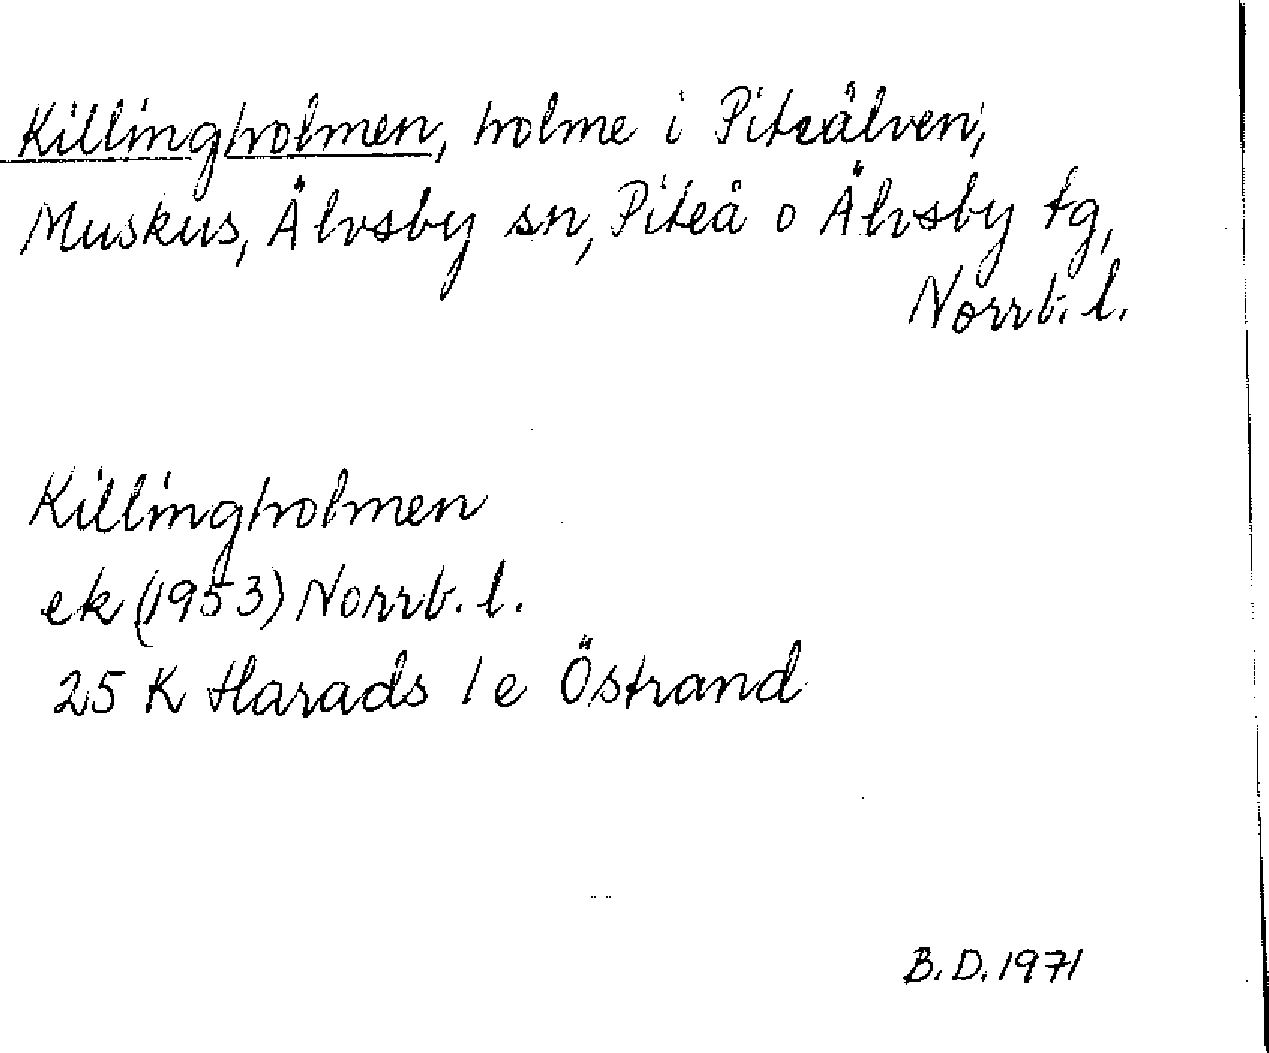 Killingholmen, holme i Piteälven,
Muskus, Älvsby sn, Piteå o Älvsby tg,
Norrb. l.
Killingholmen
ek (1953) Norrb. l.
25 K Harads 1 e Östrand
B. D. 1971